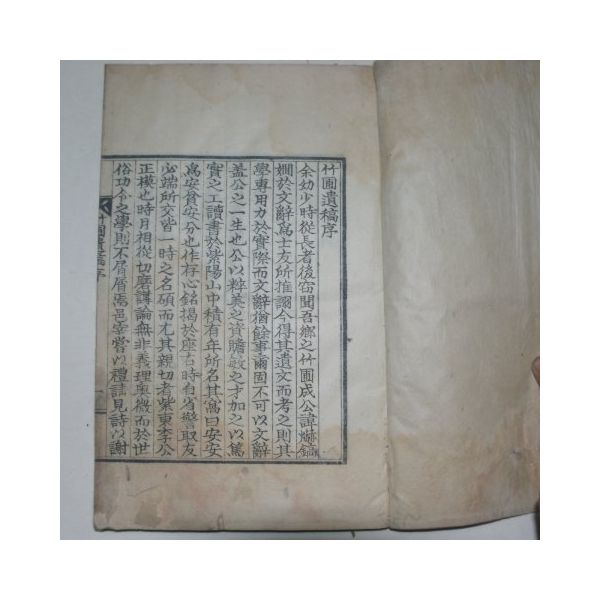 竹圃遺稿序
余幼少時從長者後窃聞吾鄉之竹圃成公諱鎬
嫺於文辭爲士友所推詡今得其遺文而考之則其
學專用力於實際而文辭猶餘事爾固不可以文辭
盖公之一生也公以粹美之資贍敏之才加之以篤
實之工讀書於紫陽山中積有年所名其寓曰安安
爲安貧安分也作存心銘揭於座右時自省警取友
必端所交皆一時之名碩而尤其親切者紫東李公
正模也時月相從切磨講論無非義理奧微而於世
俗功令之學則不屑屑焉邑宰嘗以禮請見詩以謝
竹圃遺稿序